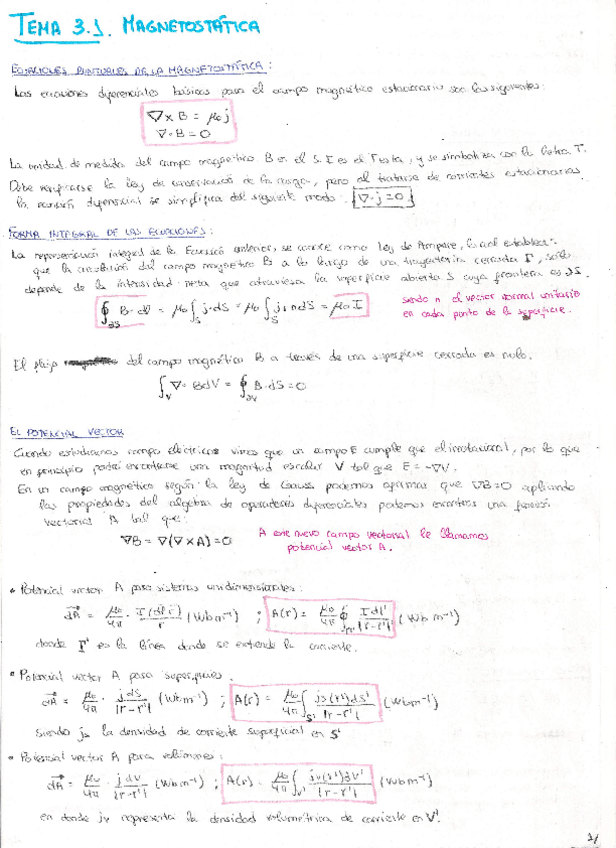 TEMA 3.1. MAGNETOSTÁTICA
ECUACIONES PUNTUALES DE LA MAGNETOSTÁTICA:
Las ecuaciones diferenciales básicas para el campo magnético estacionario son las siguientes:
∇×B = μ₀j
∇·B = 0
La unidad de medida del campo magnético B en el S.I es el Tesla, y se simboliza con la letra T.
Debe verificarse la ley de conservación de la carga, pero al tratarse de corrientes estacionarias
la ecuación diferencial se simplifica del siguiente modo: ∇·j = 0
FORMA INTEGRAL DE LAS ECUACIONES:
La representación integral de la Ecuación anterior, se conoce como Ley de Ampere, la cual establece
que la circulación del campo magnético B a lo largo de una trayectoria cerrada Γ, sólo
depende de la intensidad neta que atraviesa la superficie abierta S cuya frontera es ∂S.
∮∂S B·dl = μ₀ ∫S j·dS = μ₀ ∫S j·n dS = μ₀ I
siendo n el vector normal unitario
en cada punto de la superficie.
El flujo del campo magnético B a través de una superficie cerrada es nulo.
∫V ∇·B dV = ∮∂V B·dS = 0
EL POTENCIAL VECTOR
Cuando estudiamos campos eléctricos vimos que un campo E cumple que el irrotacional, por lo que
en principio podrá encontrarse una magnitud escalar V tal que E = -∇V.
En un campo magnético según la ley de Gauss podemos afirmar que ∇B=0 aplicando
las propiedades del álgebra de operadores diferenciales podemos encontrar una función
vectorial A tal que:
∇B = ∇(∇×A) = 0
A este nuevo campo vectorial le llamamos
potencial vector A.
• Potencial vector A para sistemas unidimensionales:
dA = μ₀/4π · I(dl')/r (Wb m⁻¹) ; A(r) = μ₀/4π ∮Γ' I dl'/|r-r'| (Wb m⁻¹)
donde Γ' es la línea donde se extiende la corriente.
• Potencial vector A para superficies.
dA = μ₀/4π · j dS/|r-r'| (Wb m⁻¹) ; A(r) = μ₀/4π ∫S' js(r')dS'/|r-r'| (Wb m⁻¹)
Siendo js la densidad de corriente superficial en S'
• Potencial vector A para volúmenes:
dA = μ₀/4π · j dV/|r-r'| (Wb m⁻¹) ; A(r) = μ₀/4π ∫V' jv(r')dV'/|r-r'| (Wb m⁻¹)
en donde jv representa la densidad volumétrica de corriente en V'.
1/